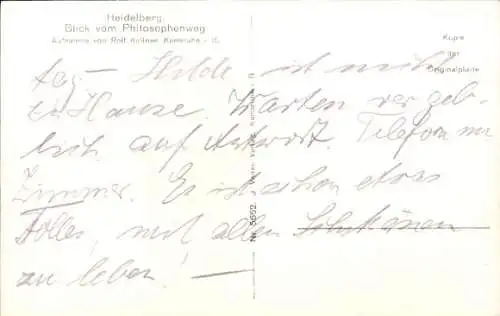 Heidelberg.
Blick vom Philosophenweg
Aufnahme von Rolf Kellner, Karlsruhe - B.
Kopie
der
Originalplatte
tag — Hilde ist nicht
zu Hause. Warten vergeb-
lich auf Antwort. Telefon im
Zimmer. Es ist schon etwas
Tolles, mit allen Schikanen
zu leben! —
Nr. 5662.